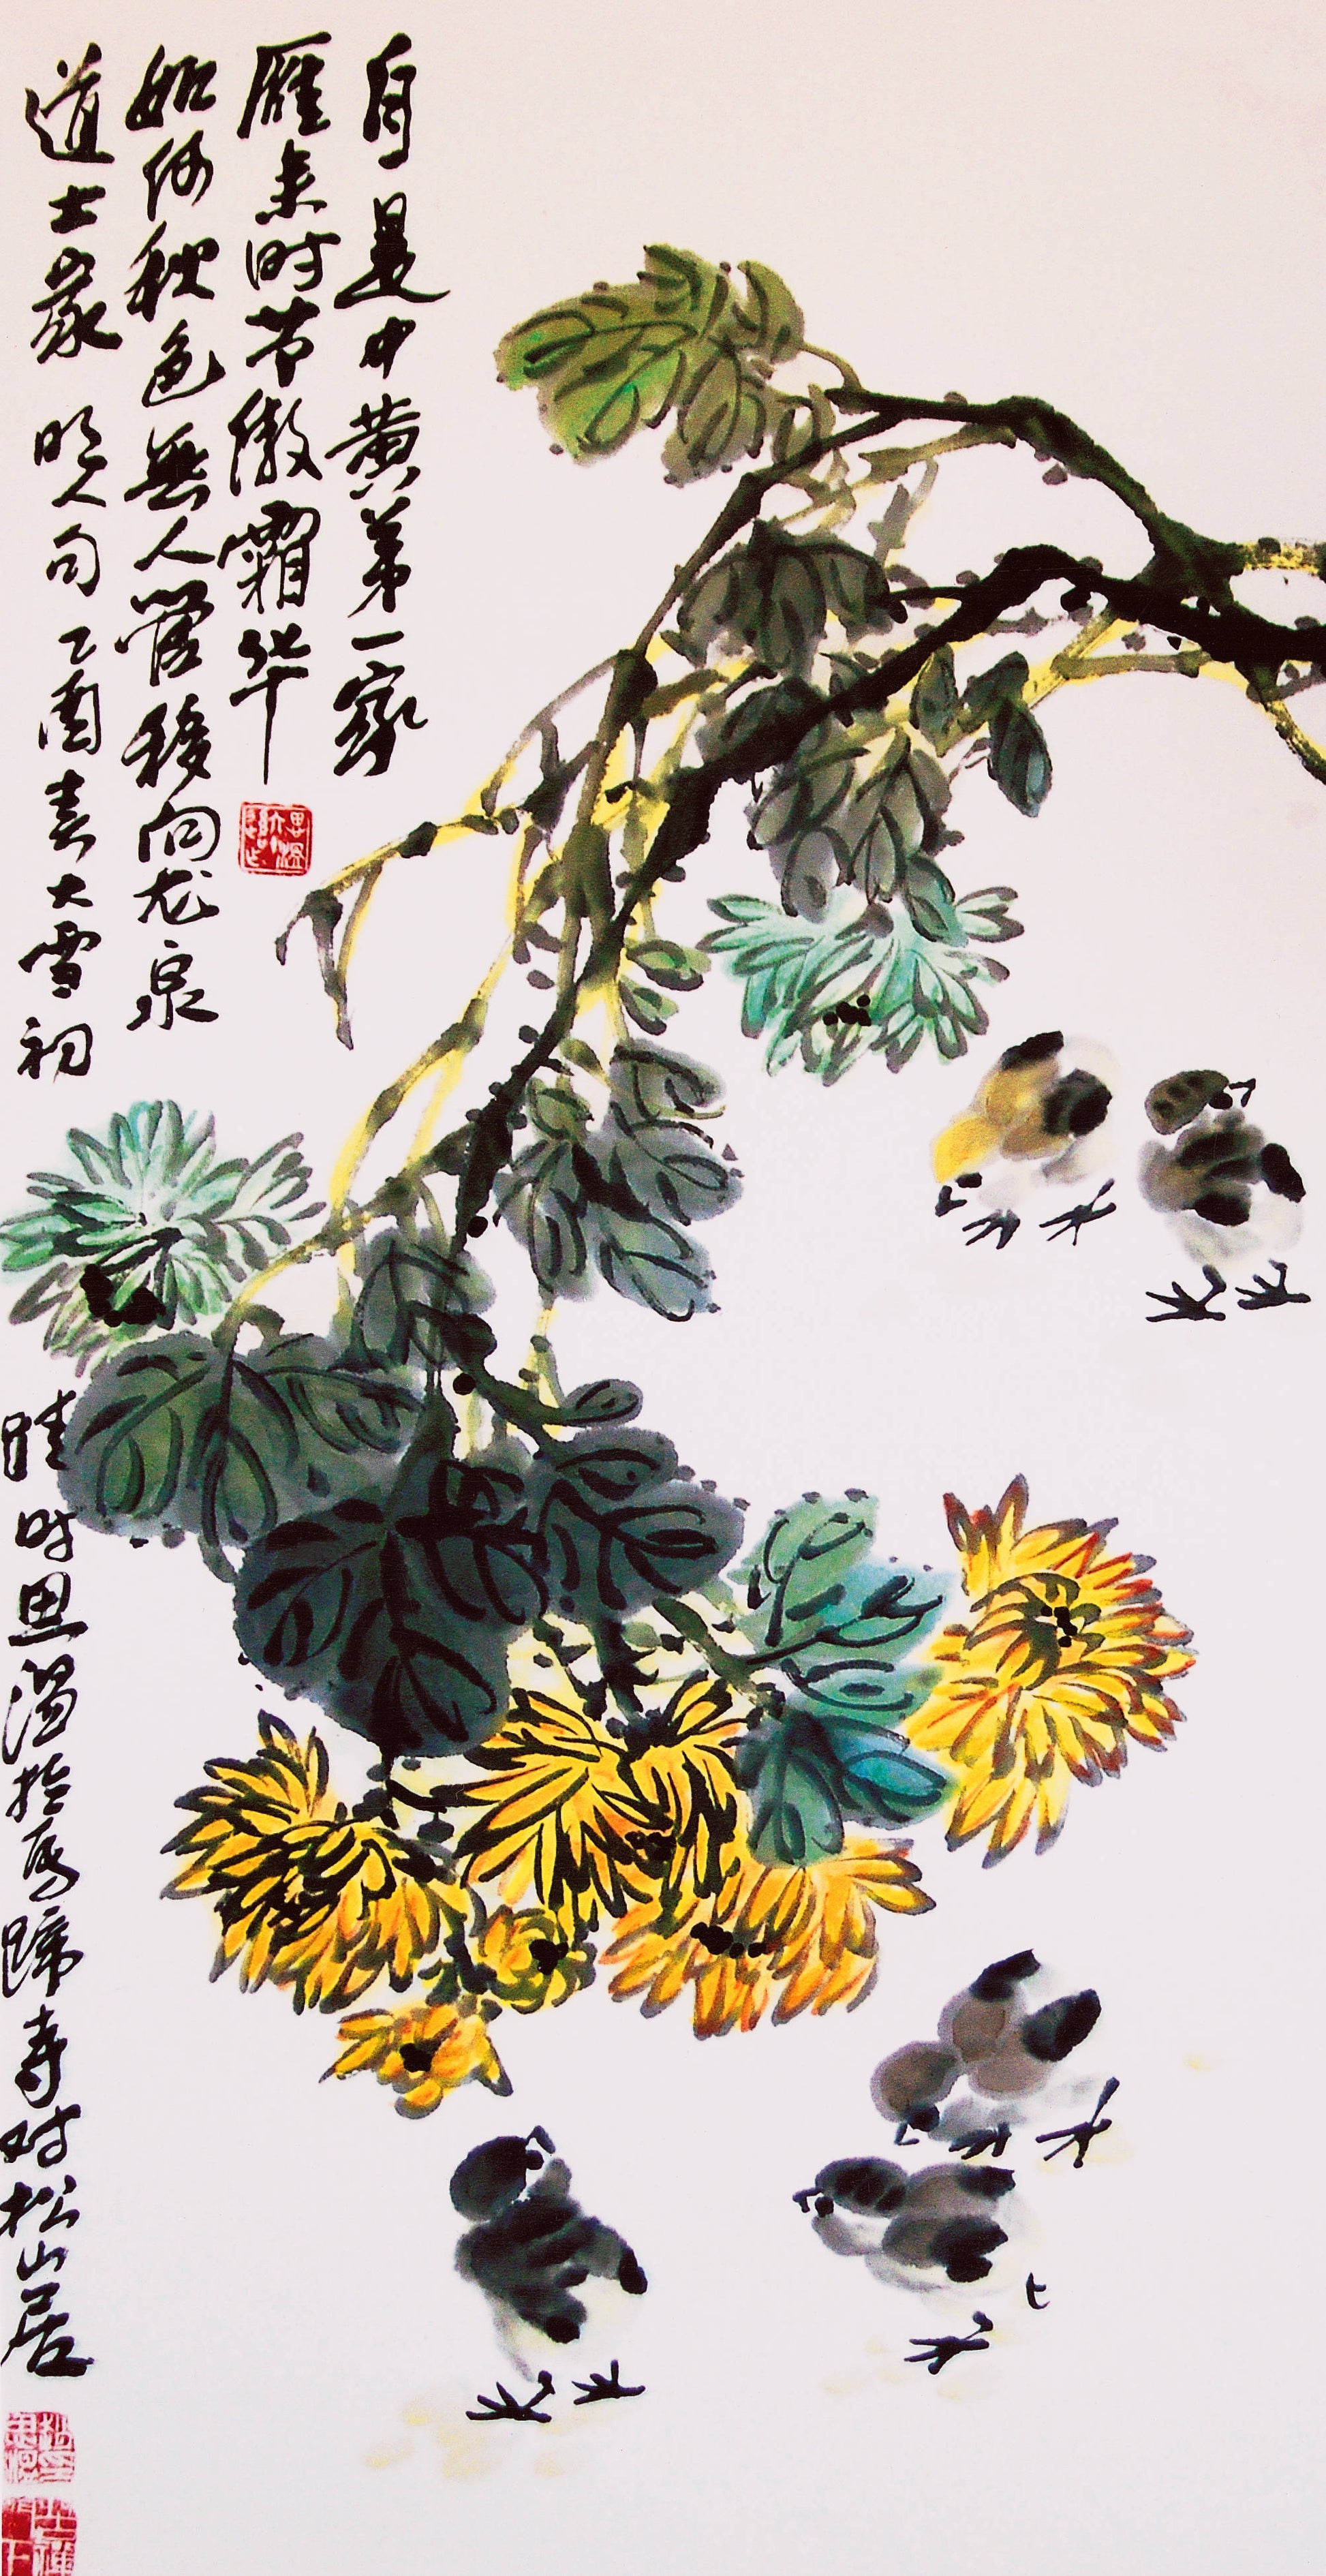 自是中黄第一家
雁来时节傲霜华
如何秋色無人管
移向龙泉
道士家 明人句 乙酉春大雪初
晴时思温于马蹄寺对松山居